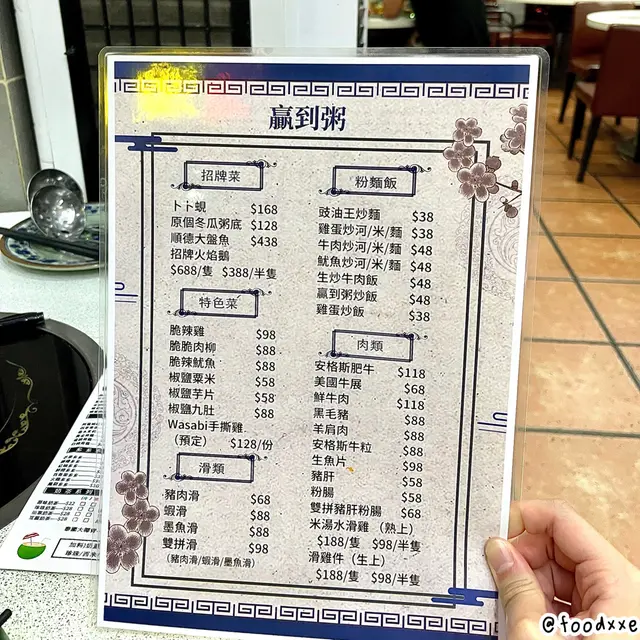 贏到粥
招牌菜
卜卜蜆 $168
原個冬瓜粥底 $128
順德大盤魚 $438
招牌火焰鵝
$688/隻 $388/半隻
特色菜
脆辣雞 $98
脆脆肉柳 $88
脆辣魷魚 $88
椒鹽粟米 $58
椒鹽芋片 $58
椒鹽九肚 $88
Wasabi手撕雞
（預定） $128/份
滑類
豬肉滑 $68
蝦滑 $88
墨魚滑 $88
雙拼滑 $98
（豬肉滑/蝦滑/墨魚滑）
粉麵飯
豉油王炒麵 $38
雞蛋炒河/米/麵 $38
牛肉炒河/米/麵 $48
魷魚炒河/米/麵 $48
生炒牛肉飯 $48
贏到粥炒飯 $48
雞蛋炒飯 $38
肉類
安格斯肥牛 $118
美國牛展 $68
鮮牛肉 $118
黑毛豬 $88
羊肩肉 $88
安格斯牛粒 $88
生魚片 $98
豬肝 $58
粉腸 $58
雙拼豬肝粉腸 $68
米湯水滑雞（熟上）
$188/隻 $98/半隻
滑雞件（生上）
$188/隻 $98/半隻
@foodxxe